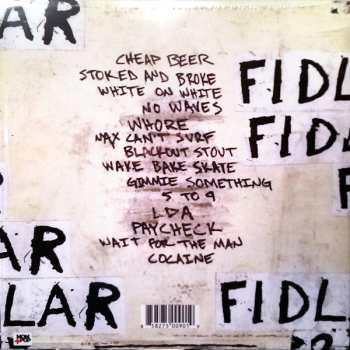 LAR
CHEAP BEER
STOKED AND BROKE
WHITE ON WHITE
NO WAVES
WHORE
MAX CAN'T SURF
BLACKOUT STOUT
WAKE BAKE SKATE
GIMMIE SOMETHING
5 TO 9
LDA
PAYCHECK
WAIT FOR THE MAN
COCAINE
FIDL
FIDL
AR
LAR
FIDL